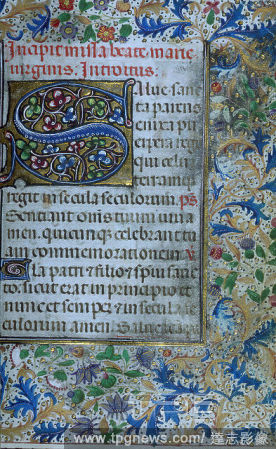 Incipit missa beate marie
virginis. Introitus.
Salve san
cta parens
enixa pu
erpera regē
qui celū
terramq̄
regit in secula seculorum. ps
Sentiant om̄s tuum iuua
men. quicunque celebrant tu
am commemorationem. v
Gla patri & filio & sp̄ui san
cto. sicut erat in principio et
nunc et semp̄ & in secula se
culorum amen. Salue sancta
www.tpgnews.com/ 達志影像